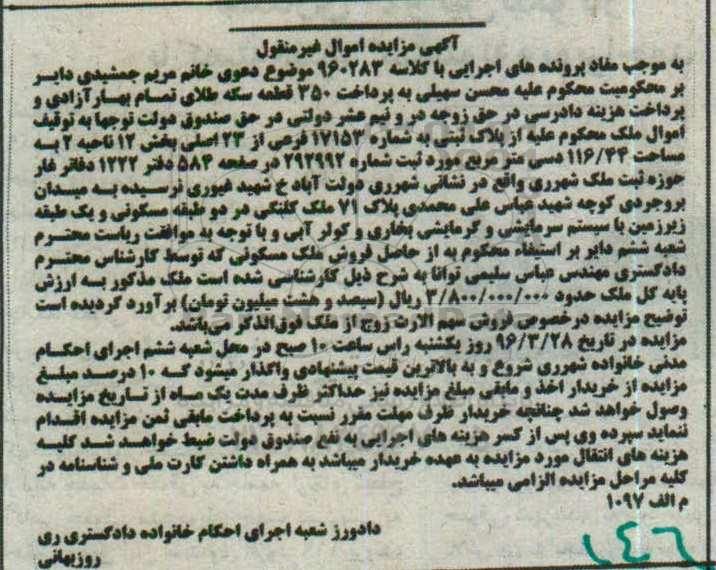 آگهی مزایده اموال غیرمنقول
به موجب مفاد پرونده های اجرایی با کلاسه ۹۶۰۲۸۳ موضوع دعوی خانم مریم جمشیدی دایر
بر محکومیت محکوم علیه محسن سهیلی به پرداخت ۳۵۰ قطعه سکه طلای تمام بهارآزادی و
پرداخت هزینه دادرسی در حق زوجه در و نیم عشر دولتی در حق صندوق دولت توجها به توقیف
اموال ملک محکوم علیه از پلاک ثبتی به شماره ۱۷۱۵۳ فرعی از ۲۳ اصلی بخش ۱۲ ناحیه ۲ به
مساحت ۱۱۶/۴۴ دسی متر مربع مورد ثبت شماره ۲۹۲۹۹۲ در صفحه ۵۸۴ دفتر ۱۲۲۲ دفاتر غار
حوزه ثبت ملک شهرری واقع در نشانی شهرری دولت آباد خ شهید غیوری نرسیده به میدان
بروجردی کوچه شهید عباس علی محمدی پلاک ۷۱ ملک کلنگی در دو طبقه مسکونی و یک طبقه
زیرزمین با سیستم سرمایشی و گرمایشی بخاری و کولر آبی و با توجه به موافقت ریاست محترم
شعبه ششم دایر بر استیفاء محکوم به از حاصل فروش ملک مسکونی که توسط کارشناس محترم
دادگستری مهندس عباس سلیمی توانا به شرح ذیل کارشناسی شده است ملک مذکور به ارزش
پایه کل ملک حدود ۳/۸۰۰/۰۰۰/۰۰۰ ریال (سیصد و هشت میلیون تومان) برآورد گردیده است
توضیح مزایده درخصوص فروش سهم الارث زوج از ملک فوق‌الذکر می‌باشد.
مزایده در تاریخ ۹۶/۳/۲۸ روز یکشنبه راس ساعت ۱۰ صبح در محل شعبه ششم اجرای احکام
مدنی خانواده شهرری شروع و به بالاترین قیمت پیشنهادی واگذار میشود که ۱۰ درصد مبلغ
مزایده از خریدار اخذ و مابقی مبلغ مزایده نیز حداکثر ظرف مدت یک ماه از تاریخ مزایده
وصول خواهد شد چنانچه خریدار ظرف مهلت مقرر نسبت به پرداخت مابقی ثمن مزایده اقدام
ننماید سپرده وی پس از کسر هزینه های اجرایی به نفع صندوق دولت ضبط خواهد شد کلیه
هزینه های انتقال مورد مزایده به عهده خریدار میباشد به همراه داشتن کارت ملی و شناسنامه در
کلیه مراحل مزایده الزامی میباشد.
م الف ۱۰۹۷
دادورز شعبه اجرای احکام خانواده دادگستری ری
روزبهانی